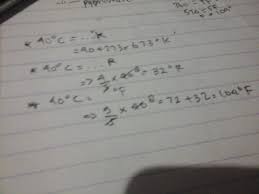 * 40°C = ...°K
= 40 + 273 = 673°K
* 40°C = ... R
=> 4/5 × 40⁸ = 32°R
* 40°C = °F
=> 9/5 × 40⁸ = 72 + 32 = 104°F